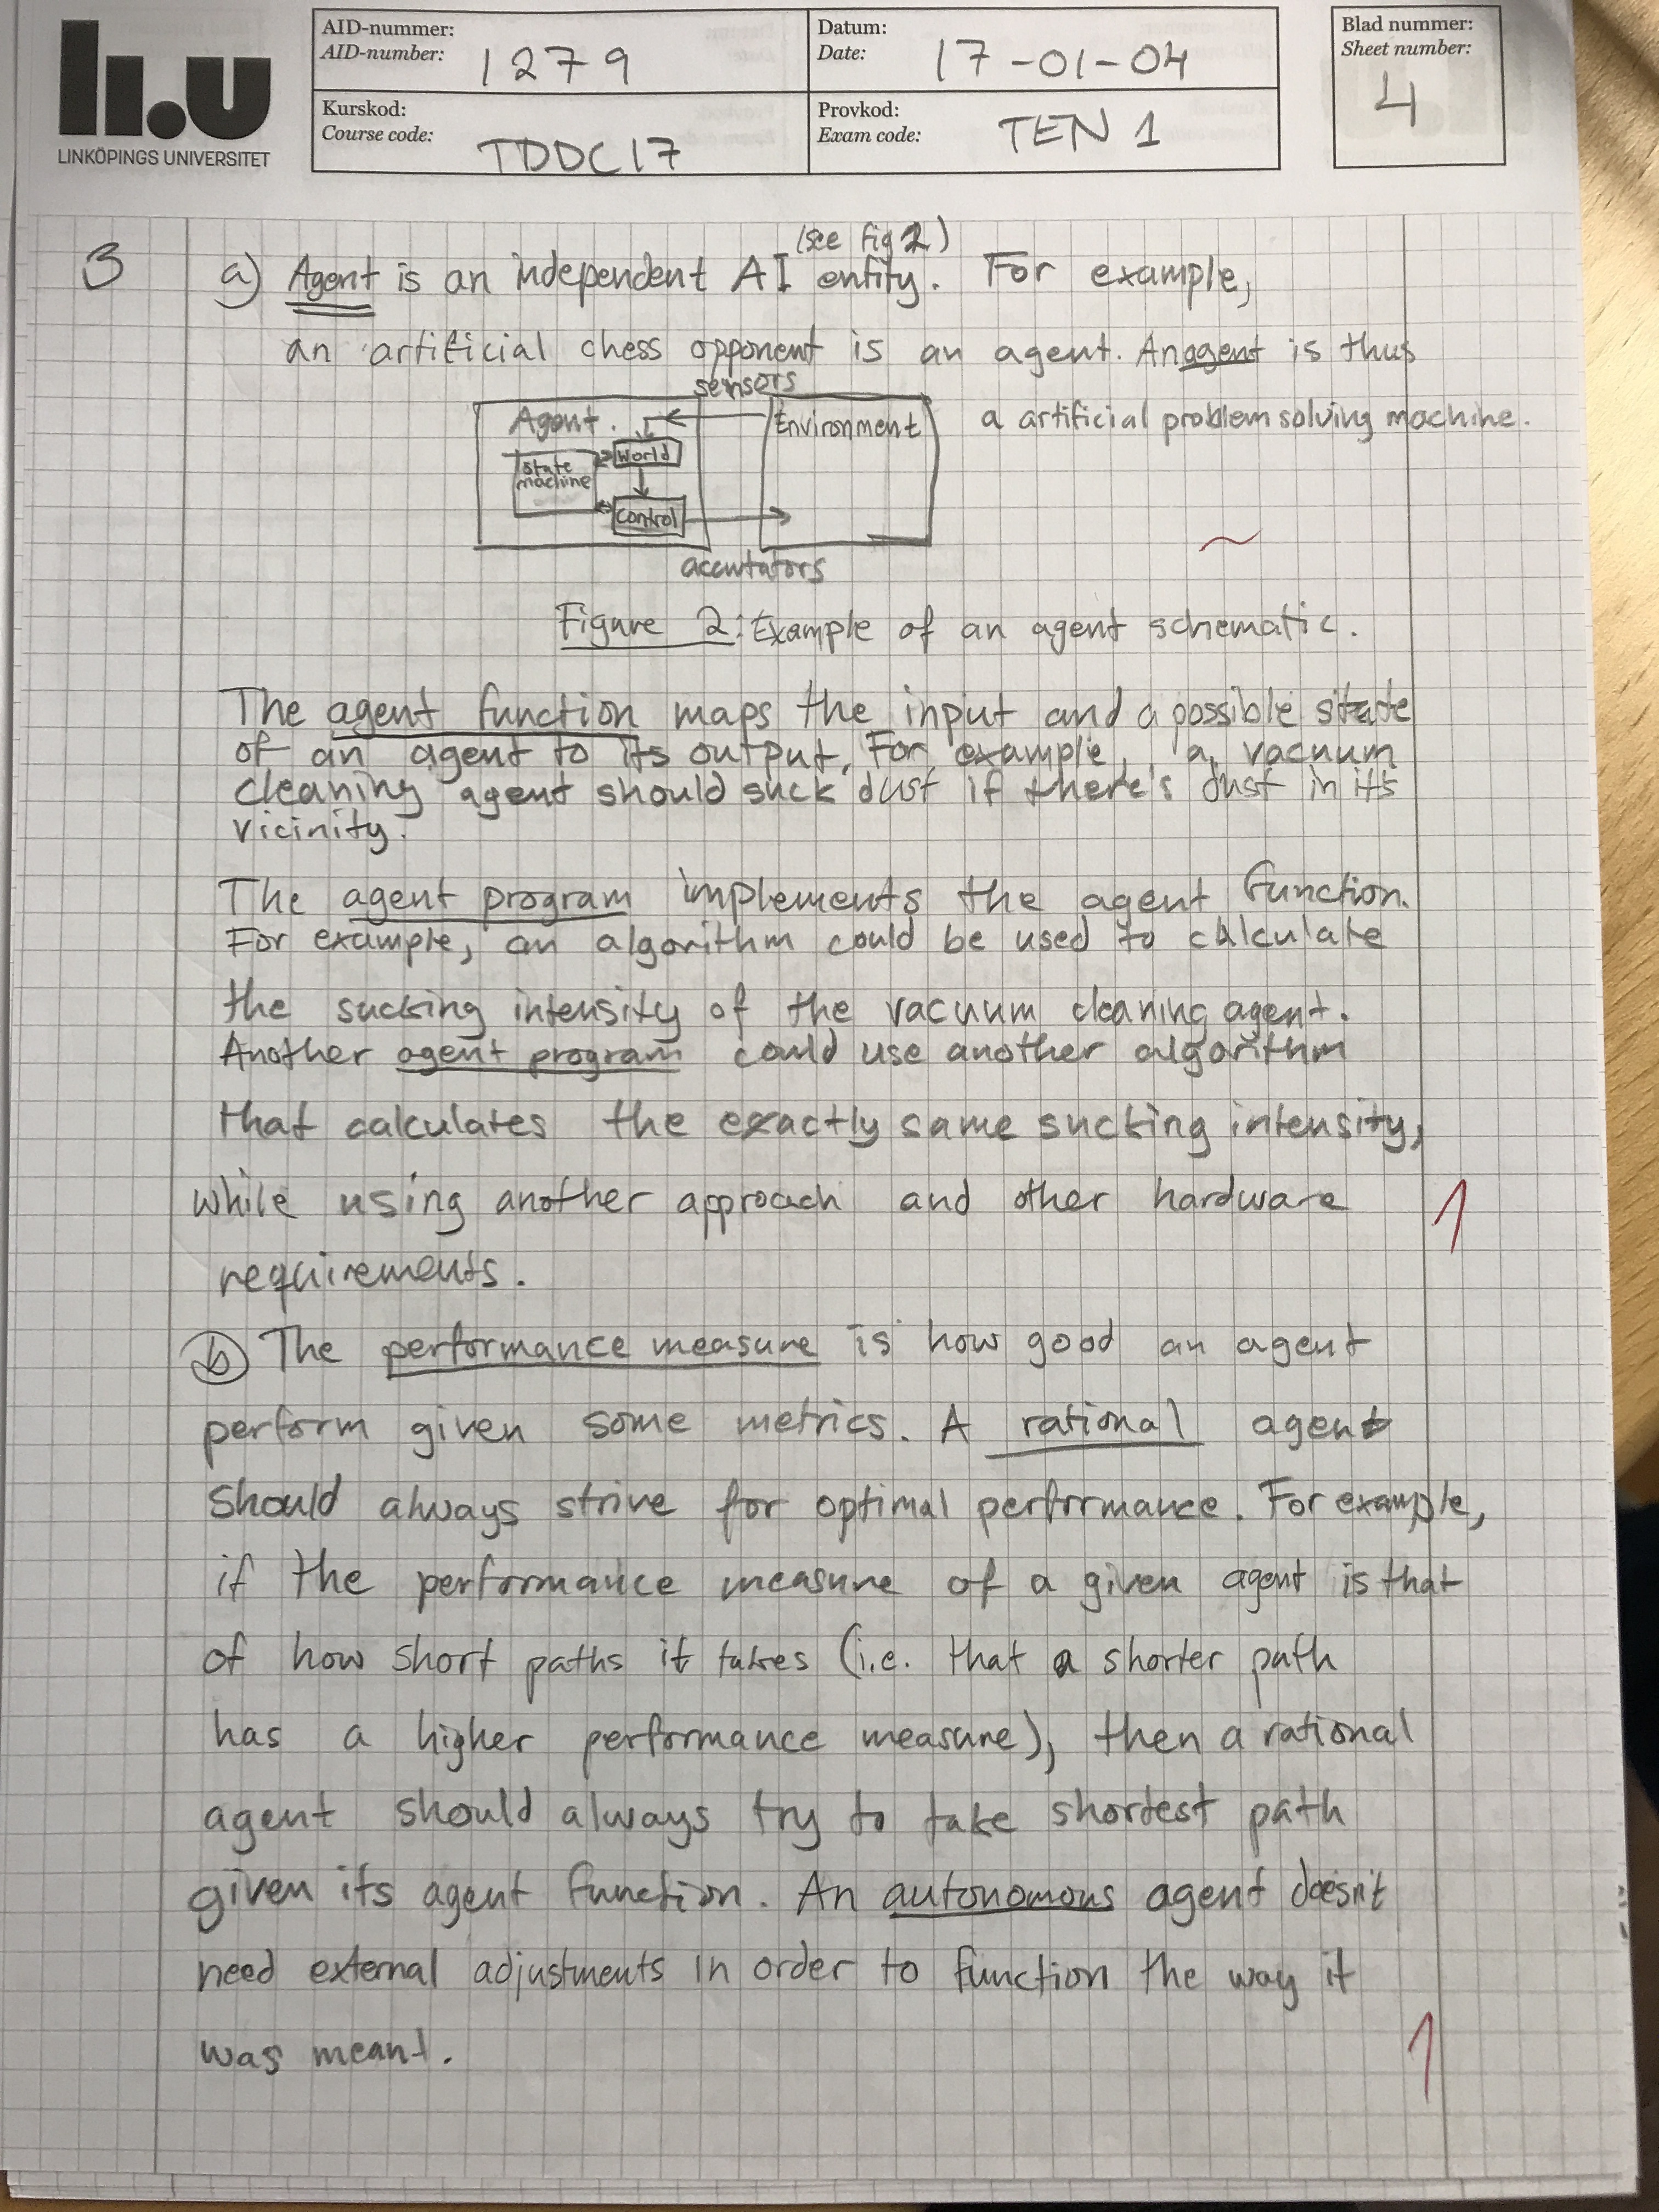 li.u
LINKÖPINGS UNIVERSITET
AID-nummer:
AID-number: 1279
Datum:
Date: 17-01-04
Blad nummer:
Sheet number:
4
Kurskod:
Course code: TDDC17
Provkod:
Exam code: TEN 1
(see fig 2)
3 a) Agent is an independent AI entity. For example,
an artificial chess opponent is an agent. An agent is thus
a artificial problem solving machine.
sensors
Agent.
Environment
World
state
machine
control
accutators
~
Figure 2: Example of an agent schematic.
The agent function maps the input and a possible state
of an agent to its output. For example, a vacuum
cleaning agent should suck dust if there's dust in its
vicinity.
The agent program implements the agent function.
For example, an algorithm could be used to calculate
the sucking intensity of the vacuum cleaning agent.
Another agent program could use another algorithm
that calculates the exactly same sucking intensity,
while using another approach and other hardware
1
requirements.
b) The performance measure is how good an agent
perform given some metrics. A rational agent
should always strive for optimal performance. For example,
if the performance measure of a given agent is that
of how short paths it takes (i.e. that a shorter path
has a higher performance measure), then a rational
agent should always try to take shortest path
given its agent function. An autonomous agent doesn't
need external adjustments in order to function the way it
was meant.
1